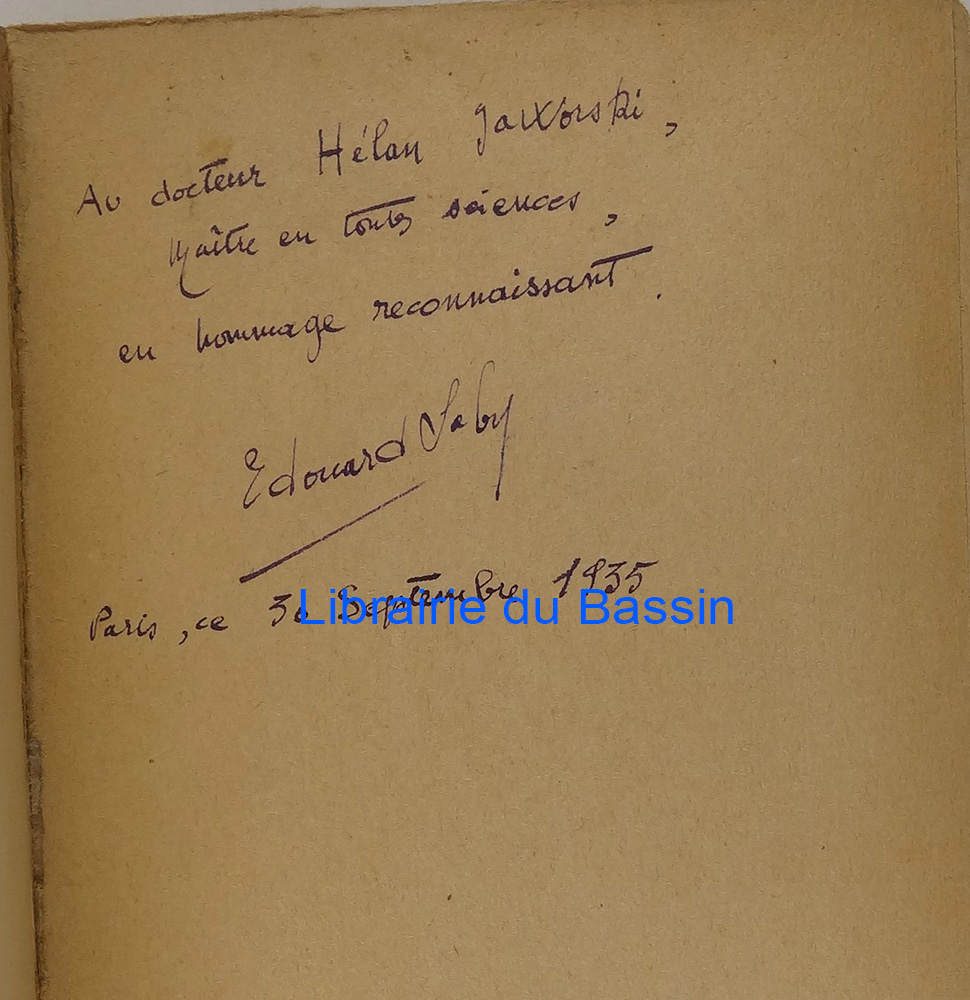 Au docteur Hélan Jaworski,
Maître en toutes sciences,
en hommage reconnaissant.
Edouard Saby
Paris, ce 30 Septembre 1935
Librairie du Bassin